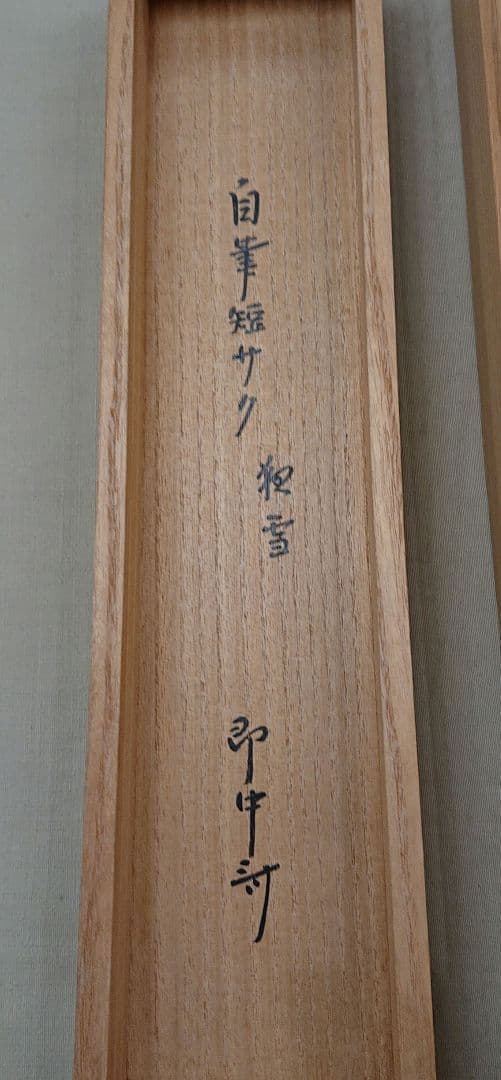 自筆短サク
雪
即中